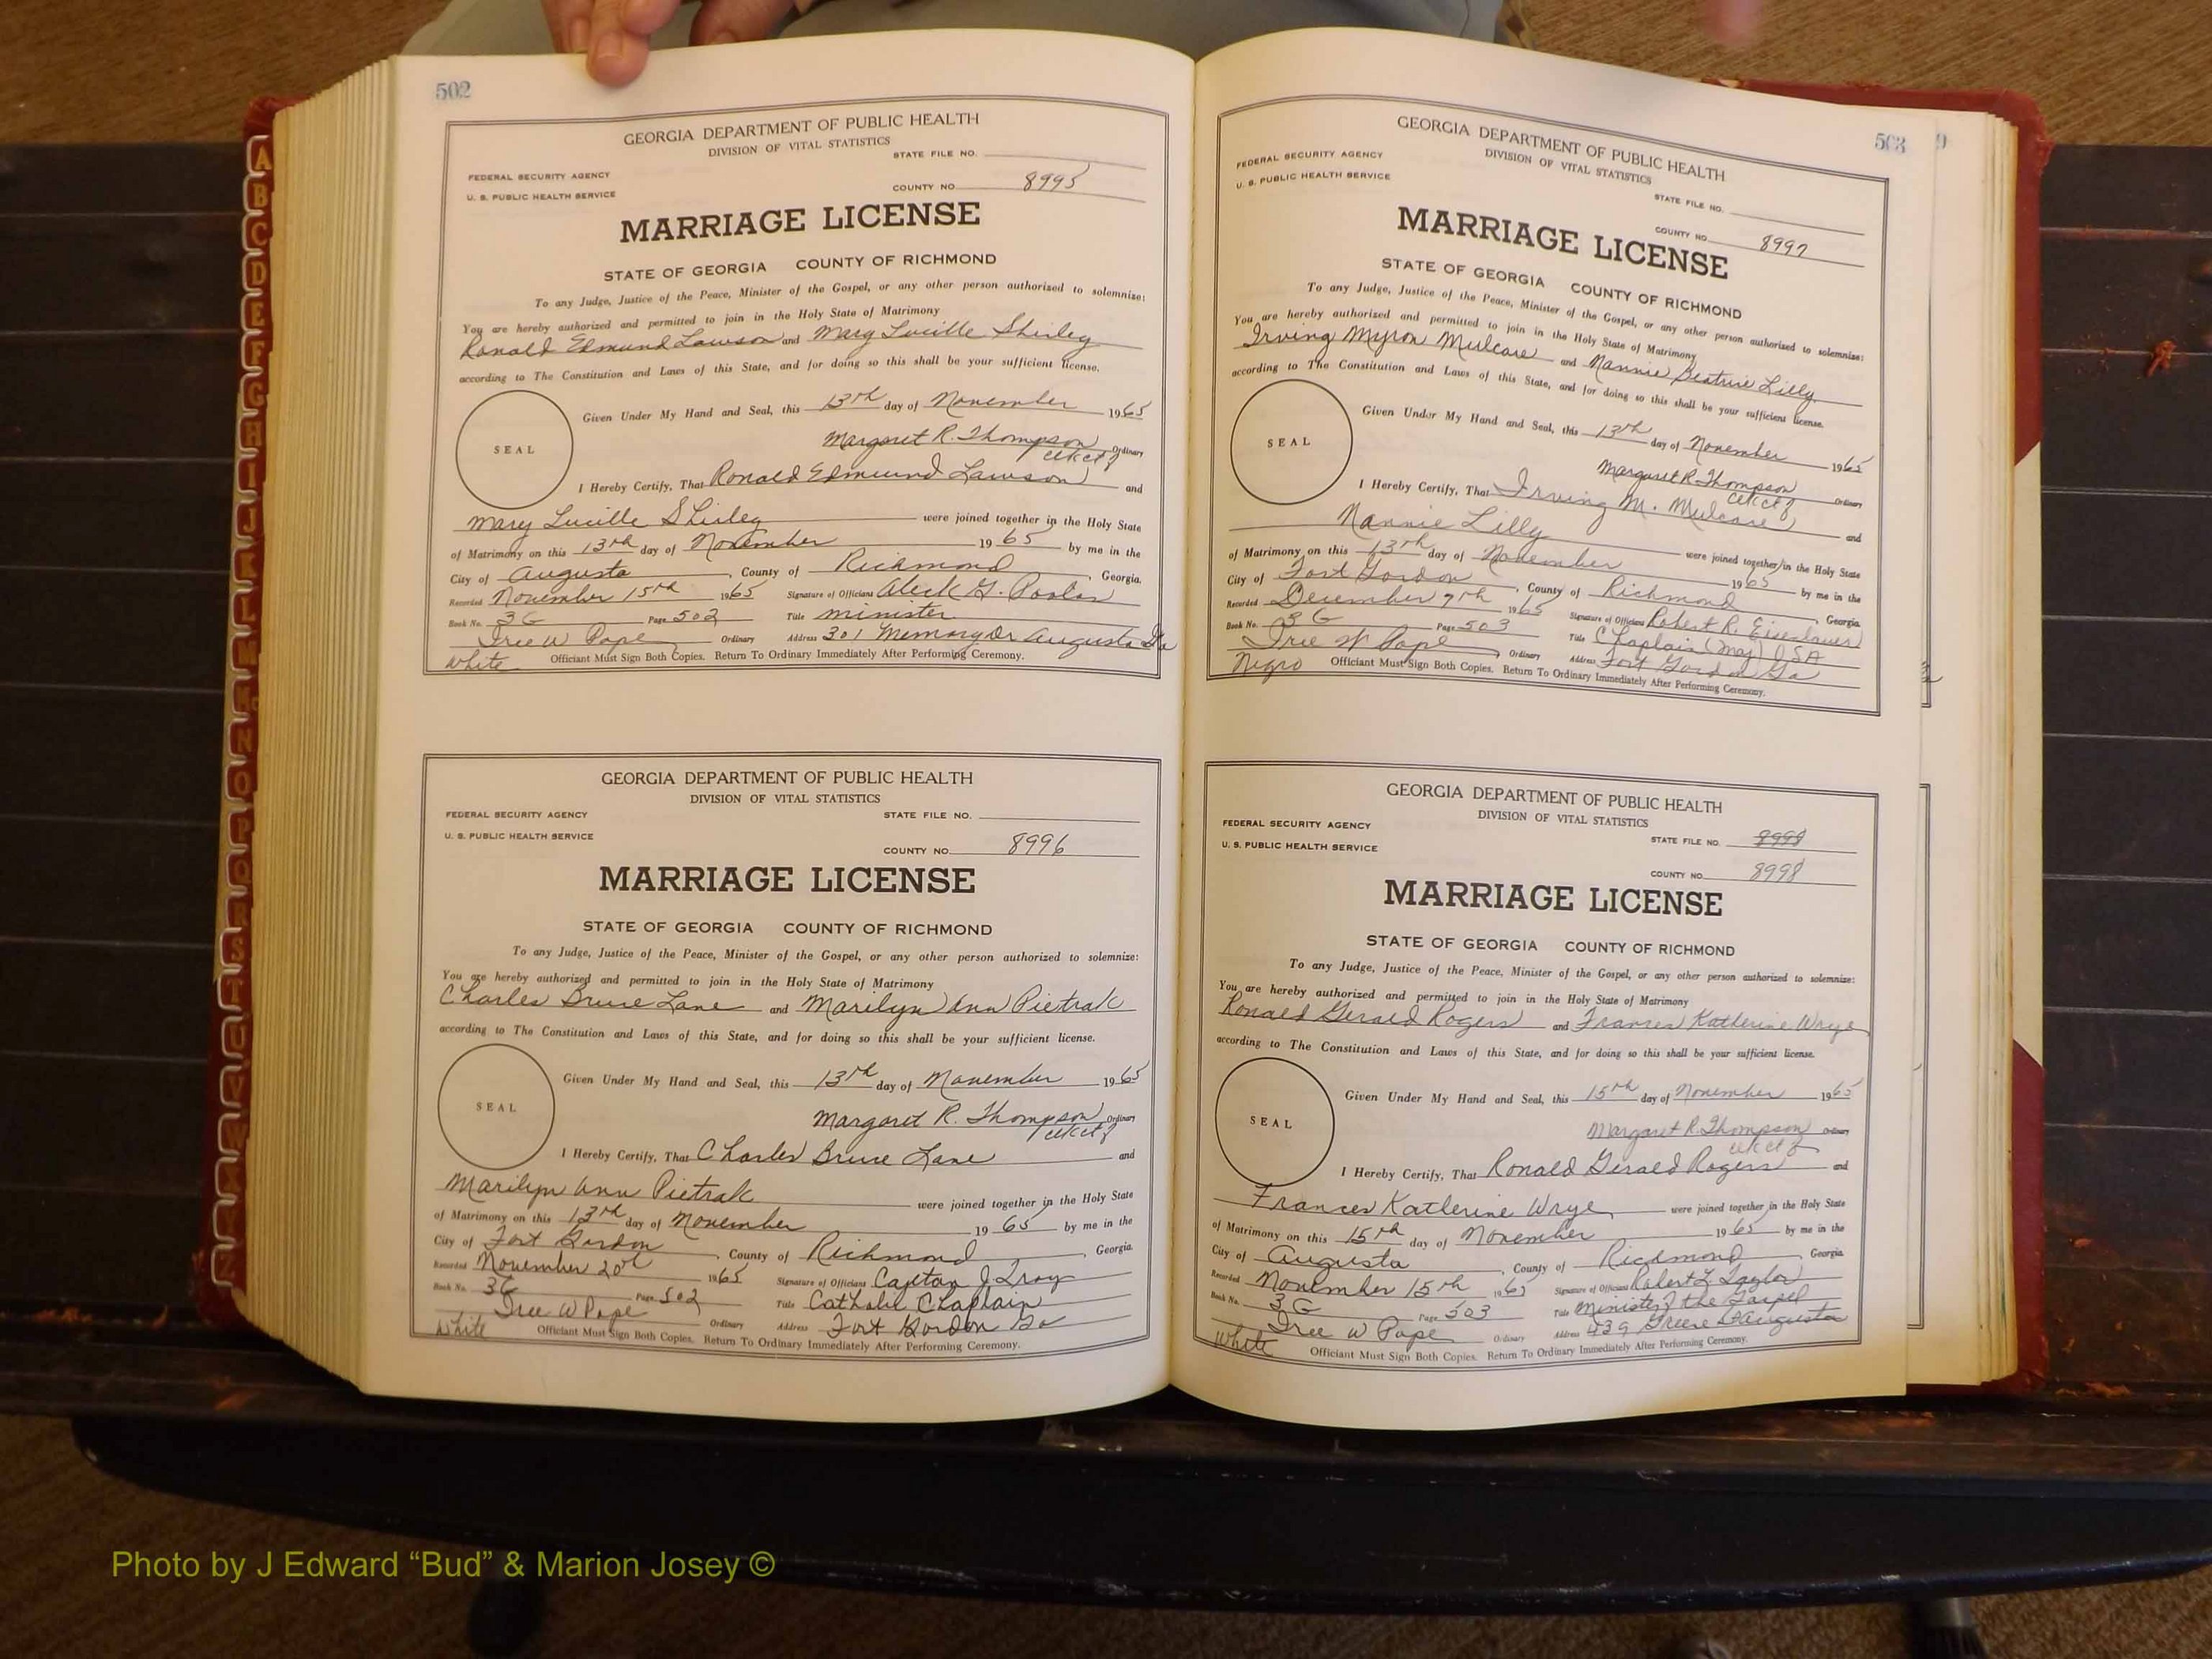 502
GEORGIA DEPARTMENT OF PUBLIC HEALTH
DIVISION OF VITAL STATISTICS
STATE FILE NO.
FEDERAL SECURITY AGENCY
U. S. PUBLIC HEALTH SERVICE
COUNTY NO. 8995
MARRIAGE LICENSE
STATE OF GEORGIA COUNTY OF RICHMOND
To any Judge, Justice of the Peace, Minister of the Gospel, or any other person authorized to solemnize:
You are hereby authorized and permitted to join in the Holy State of Matrimony
Ronald Edmund Lawson and Mary Lucille Shirley
according to The Constitution and Laws of this State, and for doing so this shall be your sufficient license.
Given Under My Hand and Seal, this 13th day of November 1965
SEAL
Margaret R. Thompson Ordinary
I Hereby Certify, That Ronald Edmund Lawson and
Mary Lucille Shirley were joined together in the Holy State
of Matrimony on this 13th day of November 1965 by me in the
City of Augusta, County of Richmond, Georgia.
Recorded November 15th 1965 Signature of Officiant Aleck G.
Book No. 3G Page 502 Title minister
Tree W Pope Ordinary Address 301 Memory Dr Augusta Ga
White Officiant Must Sign Both Copies. Return To Ordinary Immediately After Performing Ceremony.
GEORGIA DEPARTMENT OF PUBLIC HEALTH
DIVISION OF VITAL STATISTICS
FEDERAL SECURITY AGENCY STATE FILE NO.
U. S. PUBLIC HEALTH SERVICE
COUNTY NO. 8996
MARRIAGE LICENSE
STATE OF GEORGIA COUNTY OF RICHMOND
To any Judge, Justice of the Peace, Minister of the Gospel, or any other person authorized to solemnize:
You are hereby authorized and permitted to join in the Holy State of Matrimony
Charles Bruce Lane and Marilyn Ann Pietrak
according to The Constitution and Laws of this State, and for doing so this shall be your sufficient license.
Given Under My Hand and Seal, this 13th day of November 1965
SEAL
Margaret R. Thompson Ordinary
I Hereby Certify, That Charles Bruce Lane and
Marilyn Ann Pietrak were joined together in the Holy State
of Matrimony on this 13th day of November 1965 by me in the
City of Fort Gordon, County of Richmond, Georgia.
Recorded November 20th 1965 Signature of Officiant J Troy
Book No. 3G Page 502 Title Catholic Chaplain
Tree W Pope Ordinary Address Fort Gordon Ga
White Officiant Must Sign Both Copies. Return To Ordinary Immediately After Performing Ceremony.
503
GEORGIA DEPARTMENT OF PUBLIC HEALTH
DIVISION OF VITAL STATISTICS
FEDERAL SECURITY AGENCY
U. S. PUBLIC HEALTH SERVICE
STATE FILE NO.
COUNTY NO. 8997
MARRIAGE LICENSE
STATE OF GEORGIA COUNTY OF RICHMOND
To any Judge, Justice of the Peace, Minister of the Gospel, or any other person authorized to solemnize:
You are hereby authorized and permitted to join in the Holy State of Matrimony
Irving Myron Mulcare and Nannie Beatrice Lilly
according to The Constitution and Laws of this State, and for doing so this shall be your sufficient license.
Given Under My Hand and Seal, this 13th day of November 1965
SEAL
Margaret R. Thompson Ordinary
I Hereby Certify, That Irving M. Mulcare and
Nannie Lilly were joined together in the Holy State
of Matrimony on this 13th day of November 1965 by me in the
City of Fort Gordon, County of Richmond, Georgia.
Recorded December 7th 1965 Signature of Officiant Robert R.
Book No. 3G Page 503 Title Chaplain (Maj) USA
Tree W Pope Ordinary Address Fort Gordon Ga
Negro Officiant Must Sign Both Copies. Return To Ordinary Immediately After Performing Ceremony.
GEORGIA DEPARTMENT OF PUBLIC HEALTH
DIVISION OF VITAL STATISTICS
FEDERAL SECURITY AGENCY
STATE FILE NO. 8998
U. S. PUBLIC HEALTH SERVICE
COUNTY NO. 8998
MARRIAGE LICENSE
STATE OF GEORGIA COUNTY OF RICHMOND
To any Judge, Justice of the Peace, Minister of the Gospel, or any other person authorized to solemnize:
You are hereby authorized and permitted to join in the Holy State of Matrimony
Ronald Gerald Rogers and Frances Katherine Wrye
according to The Constitution and Laws of this State, and for doing so this shall be your sufficient license.
Given Under My Hand and Seal, this 15th day of November 1965
SEAL
Margaret R. Thompson Ordinary
I Hereby Certify, That Ronald Gerald Rogers and
Frances Katherine Wrye were joined together in the Holy State
of Matrimony on this 15th day of November 1965 by me in the
City of Augusta, County of Richmond, Georgia
Recorded November 15th 1965 Signature of Officiant Robert L Taylor
Book No. 3G Page 503 Title Minister of the Gospel
Tree W Pope Ordinary Address 439 Greene St Augusta
White Officiant Must Sign Both Copies. Return To Ordinary Immediately After Performing Ceremony.
A
B
C
D
E
F
G
H
I
J
K
L
M
Mc
N
O
P
Q
R
S
T
U
V
W
X
Y
Z
Photo by J Edward “Bud” & Marion Josey ©